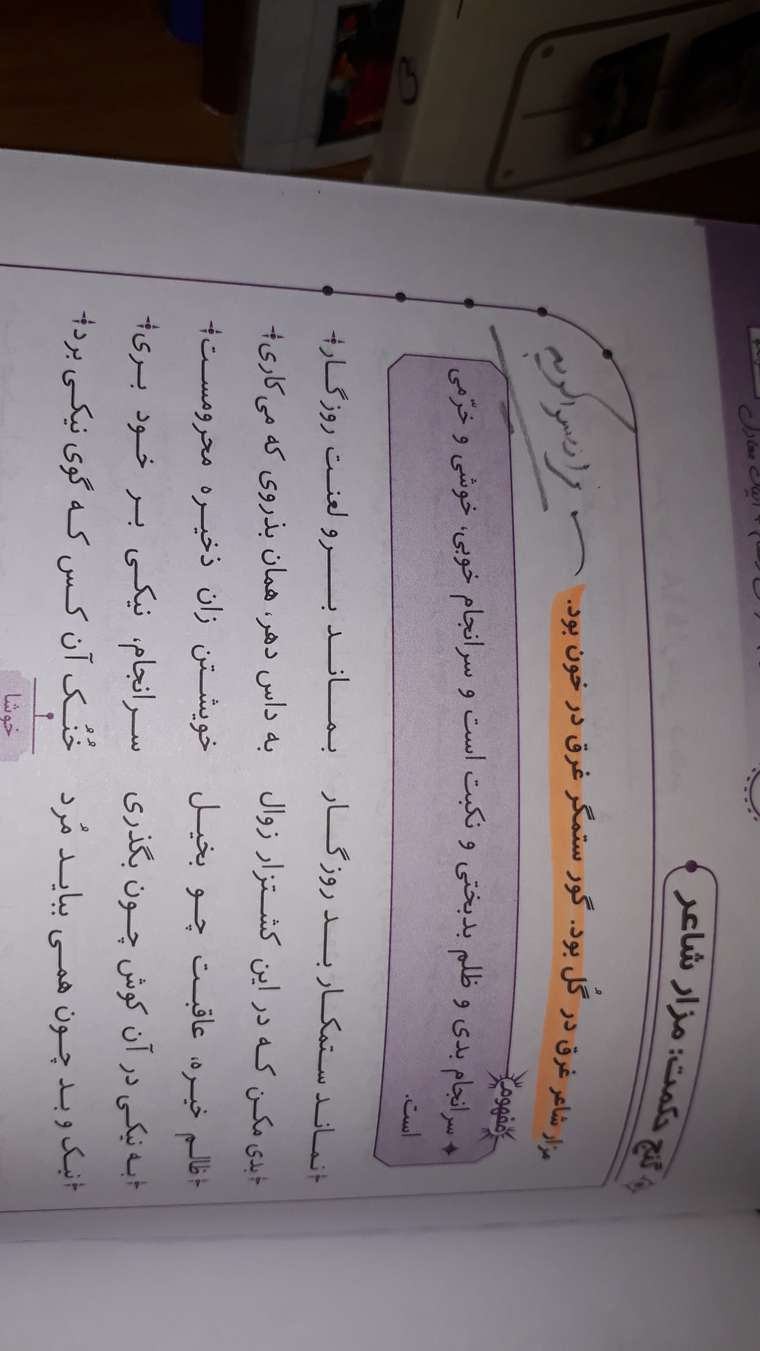 گنج حکمت: مزار شاعر
مزار شاعر غرق در گُل بود. گور ستمگر غرق در خون بود.
مفهوم
سرانجام بدی و ظلم بدبختی و نکبت است و سرانجام خوبی، خوشی و خرّمی
است.
نماند ستمکار بد روزگار بماند برو لعنت روزگار
بدی مکن که در این کشتزار زوال به داس دهر، همان بدروی که می‌کاری
ظالم خیره، عاقبت چو بخیل خویشتن زان ذخیره محرومست
به نیکی در آن کوش چون بگذری سرانجام، نیکی بر خود بری
نیک و بد چون همی بباید مُرد خُنُک آن کس که گوی نیکی برد
خوشا